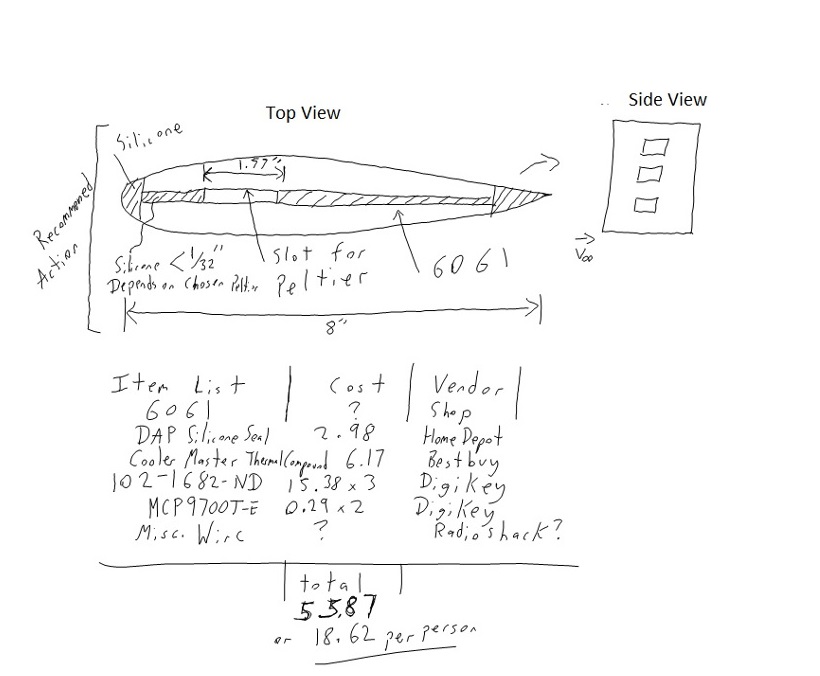 Top View
Side View
Silicone
1.57"
Recommend
Action
V∞
Silicone < 1/32"
Depends on Chosen Peltier
Slot for
Peltier
6061
8"
Item List | Cost | Vendor |
6061 ? Shop
DAP Silicone Seal 2.98 Home Depot
Cooler Master Thermal Compound 6.17 Bestbuy
102-1682-ND 15.38 x 3 DigiKey
MCP9700T-E 0.29 x 2 DigiKey
Misc. Wire ? Radioshack?
total
55.87
or 18.62 per person